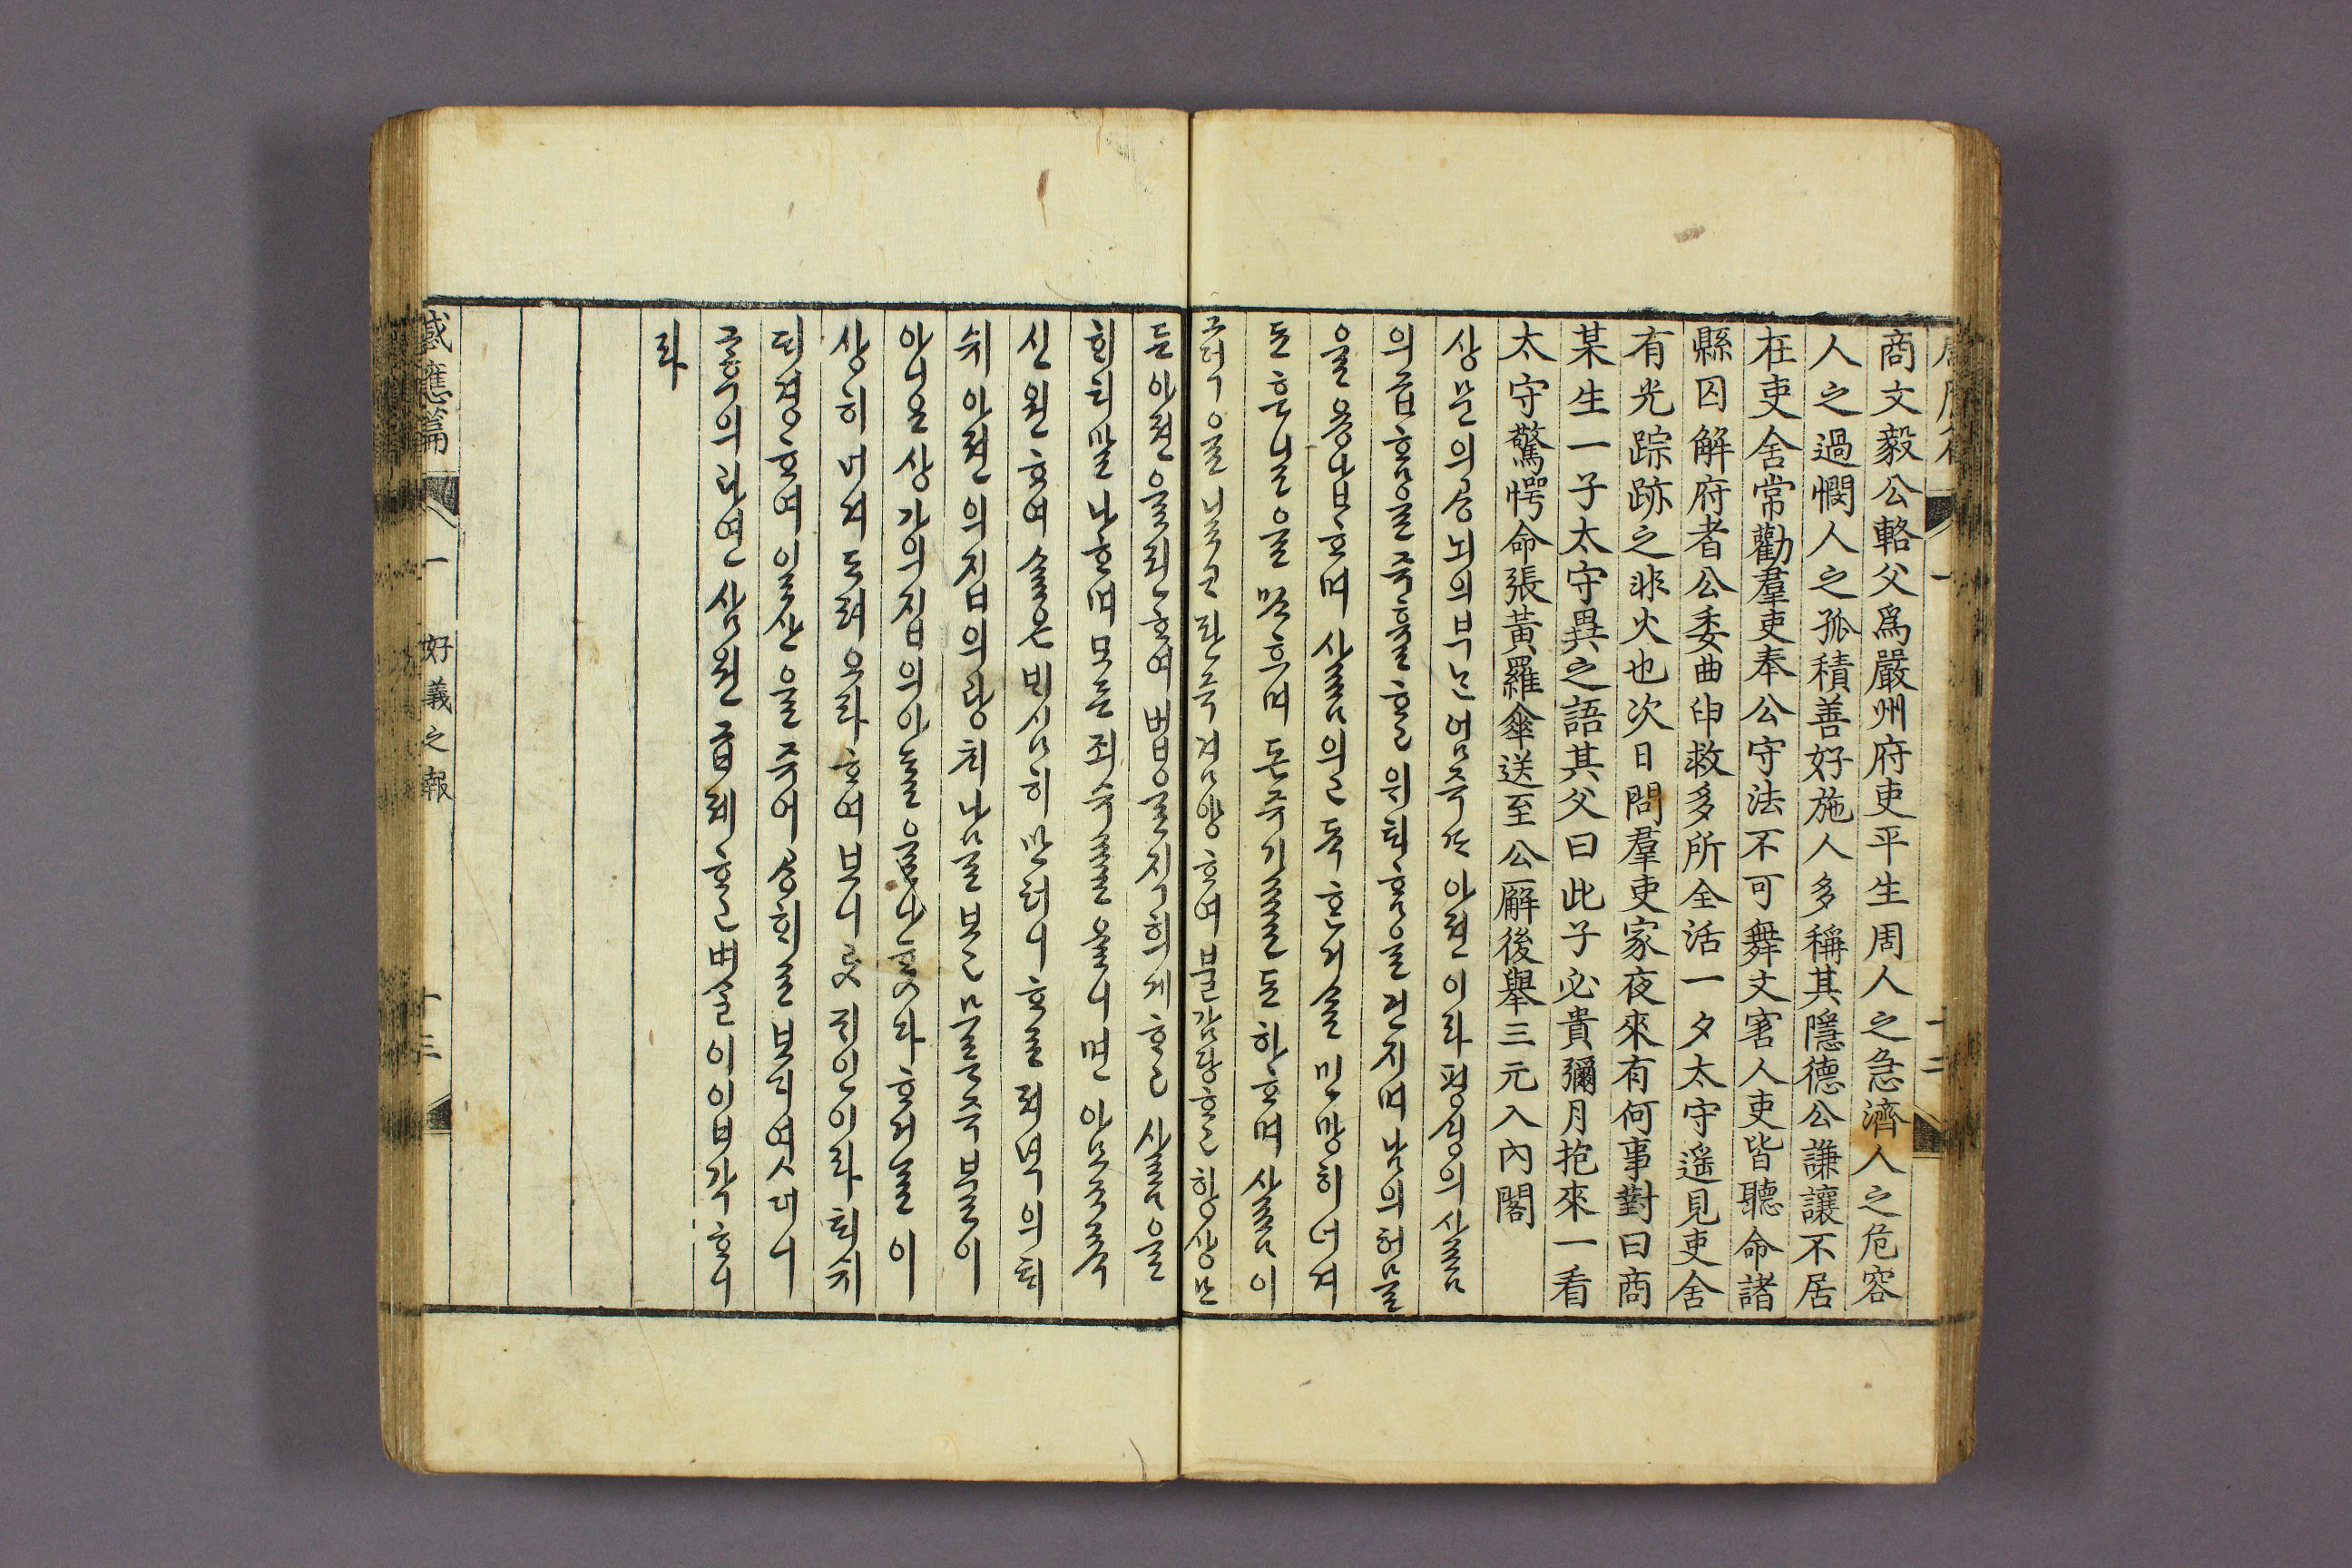 一 十二
商文毅公輅父爲嚴州府吏平生周人之急濟人之危容
人之過憫人之孤積善好施人多稱其隱德公謙讓不居
在吏舍常勸羣吏奉公守法不可舞文害人吏皆聽命諸
縣囚解府者公委曲申救多所全活一夕太守遥見吏舍
有光踪跡之非火也次日問羣吏家夜來有何事對曰商
某生一子太守異之語其父曰此子必貴彌月抱來一看
太守驚愕命張黃羅傘送至公廨後舉三元入內閣
상문의공뇌의부ᄂᆞᆫ엄쥬ㅅ아젼이라평ᄉᆡᆼ의사ᄅᆞᆷ
의급ᄒᆞᆷ을쥬휼ᄒᆞ고위ᄐᆡᄒᆞᆷ을건지며남의허믈
을용납ᄒᆞ며사ᄅᆞᆷ의고독ᄒᆞᆫ거ᄉᆞᆯ민망히너겨
돈쥬기ᄅᆞᆯ됴하ᄒᆞ며사ᄅᆞᆷ이
그덕을닐ᄏᆞᆺ고ᄌᆞᆨ겸양ᄒᆞ여불감당ᄒᆞ고ᄒᆡᆼ상모
든아젼을권ᄒᆞ여법을직희게ᄒᆞ고사ᄅᆞᆷ을
ᄒᆡ치말나ᄒᆞ며모든죄슈ᄅᆞᆯ올니면아모죠록
신원ᄒᆞ여ᄉᆞᆯ온ᄇᆡ심히만터니ᄒᆞᄅᆞ져녁의ᄐᆡ
쉬아젼의집의광ᄎᆡ나믈보고므ᄅᆞᆫ즉불이
아니오상가의집의아ᄃᆞᆯ을나핫다ᄒᆞ거ᄂᆞᆯ이
상히너겨ᄃᆞ려오라ᄒᆞ여보니귀인이라ᄐᆡ쉬
ᄃᆡ경ᄒᆞ여일산을쥬어보ᄂᆡ엿더니
그후의과연삼원급제ᄒᆞ고벼ᄉᆞᆯ이ᄂᆡ각ᄒᆞ니
라
感應篇 一 好義之報 十三